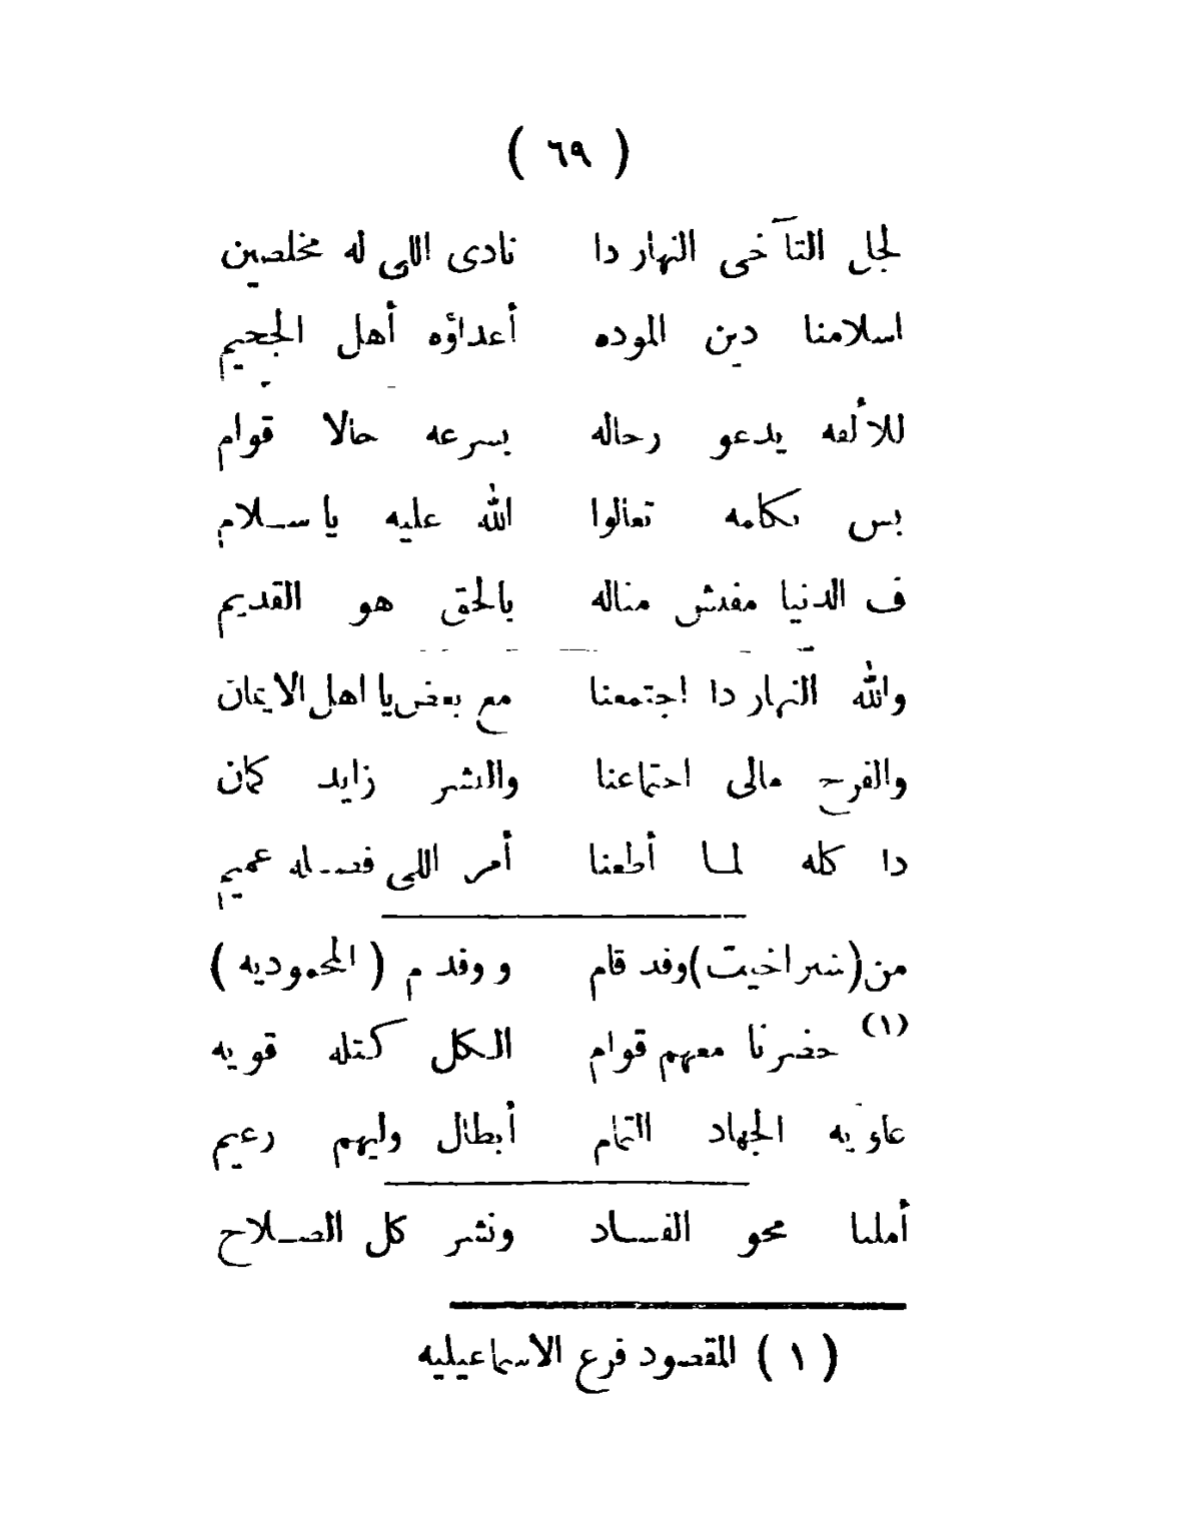 ( ٦٩ )
لجل التآخى النهار دا نادى اللى له مخلصين
اسلامنا دين الموده أعداؤه أهل الجحيم
للألفه يدعو رجاله بسرعه حالا قوام
بس بكلمه تعالوا الله عليه يا سلام
ف الدنيا مفيش مثاله بالحق هو القديم
والله النهار دا اجتمعنا مع بعض يا اهل الايمان
والفرح مالى اجتماعنا والبشر زايد كمان
دا كله لما أطعنا أمر اللى فضله عميم
من (شبراخيت) وفد قام ووفد م (المحموديه)
(١) حضرنا معهم قوام الكل كتله قويه
الجهاد التمام أبطال وليهم زعيم
أملنا محو الفساد ونشر كل الصلاح
( ١ ) المقصود فرع الاسماعيليه